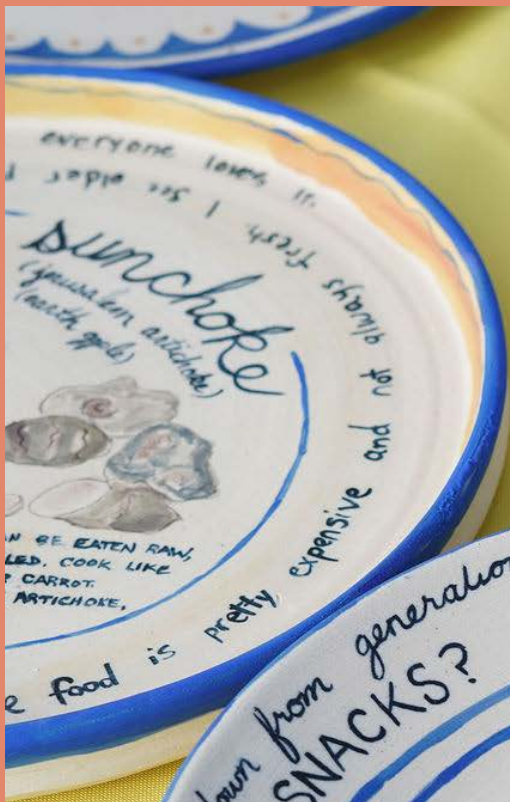 everyone loves it.
e food is pretty expensive and not always fresh. I see older
sunchoke
(jerusalem artichoke)
(earth apple)
N BE EATEN RAW,
LED. COOK LIKE
CARROT.
ARTICHOKE,
own from generation
SNACKS?